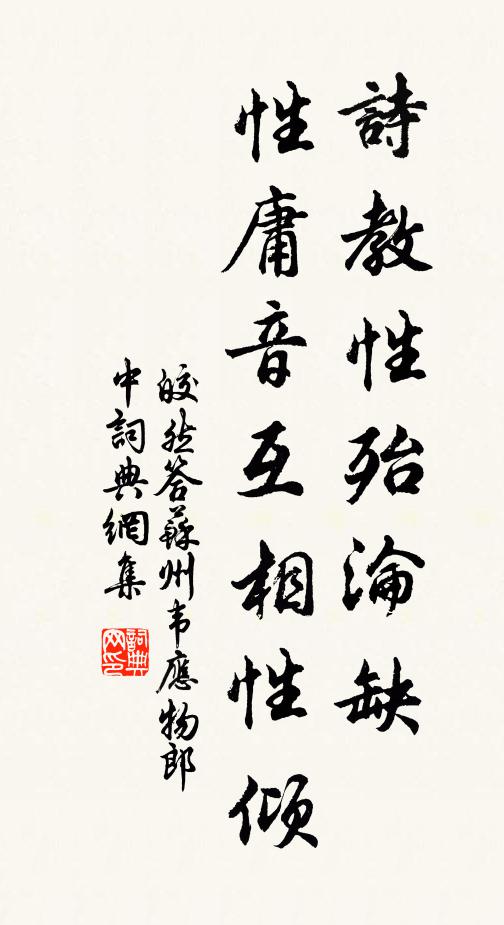 詩教性殆淪缺
性庸音互相性傾
皎然答蘇州韦應物郎
中詞典網集
詞典网印